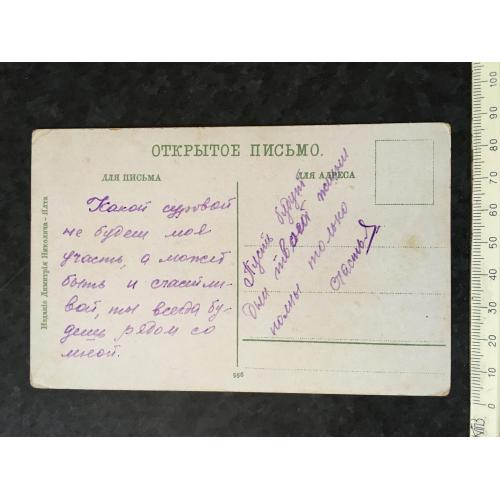 ОТКРЫТОЕ ПИСЬМО.
ДЛЯ ПИСЬМА
ДЛЯ АДРЕСА
Какой суровой
не будет моя
участь, а может
быть и счастли-
вой, ты всегда бу-
дешь рядом со
мной.
Пусть будут
Дни твоей жизни
полны только
счастья
Изданіе Димитрія Николича - Ялта
556
0 10 20 30 40 50 60 70 80 90 100